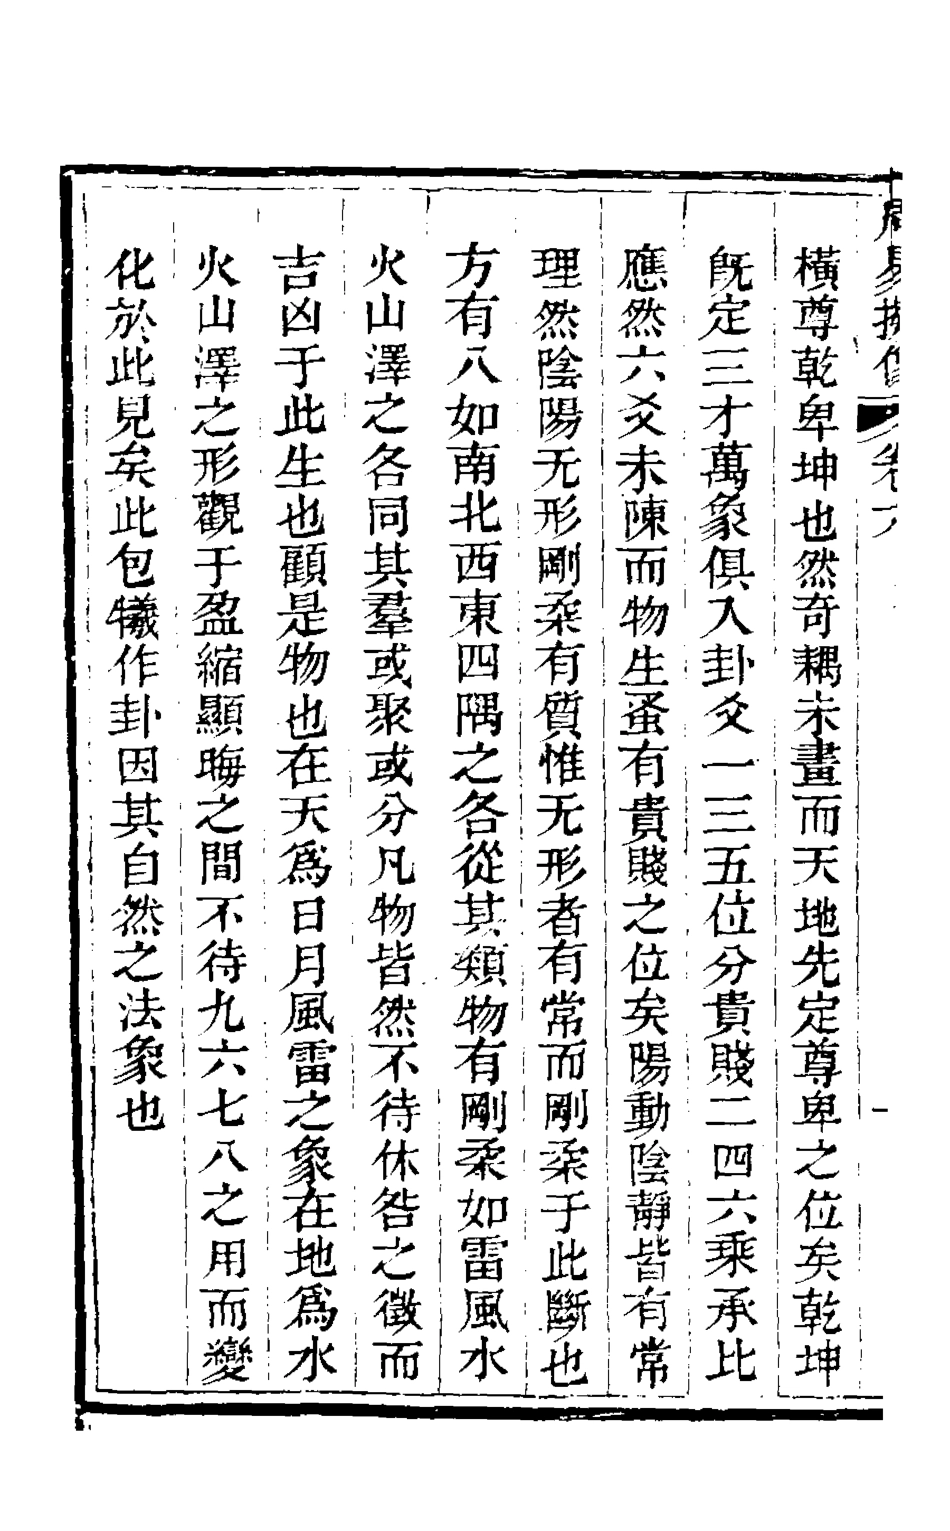 橫尊乾卑坤也然奇耦未畫而天地先定尊卑之位矣乾坤
旣定三才萬象俱入卦爻一三五位分貴賤二四六乘承比
應然六爻未陳而物生蚤有貴賤之位矣陽動陰靜皆有常
理然陰陽无形剛柔有質惟无形者有常而剛柔于此斷也
方有八如南北西東四隅之各從其類物有剛柔如雷風水
火山澤之各同其羣或聚或分凡物皆然不待休咎之徵而
吉凶于此生也顧是物也在天爲日月風雷之象在地爲水
火山澤之形觀于盈縮顯晦之間不待九六七八之用而變
化於此見矣此包犧作卦因其自然之法象也